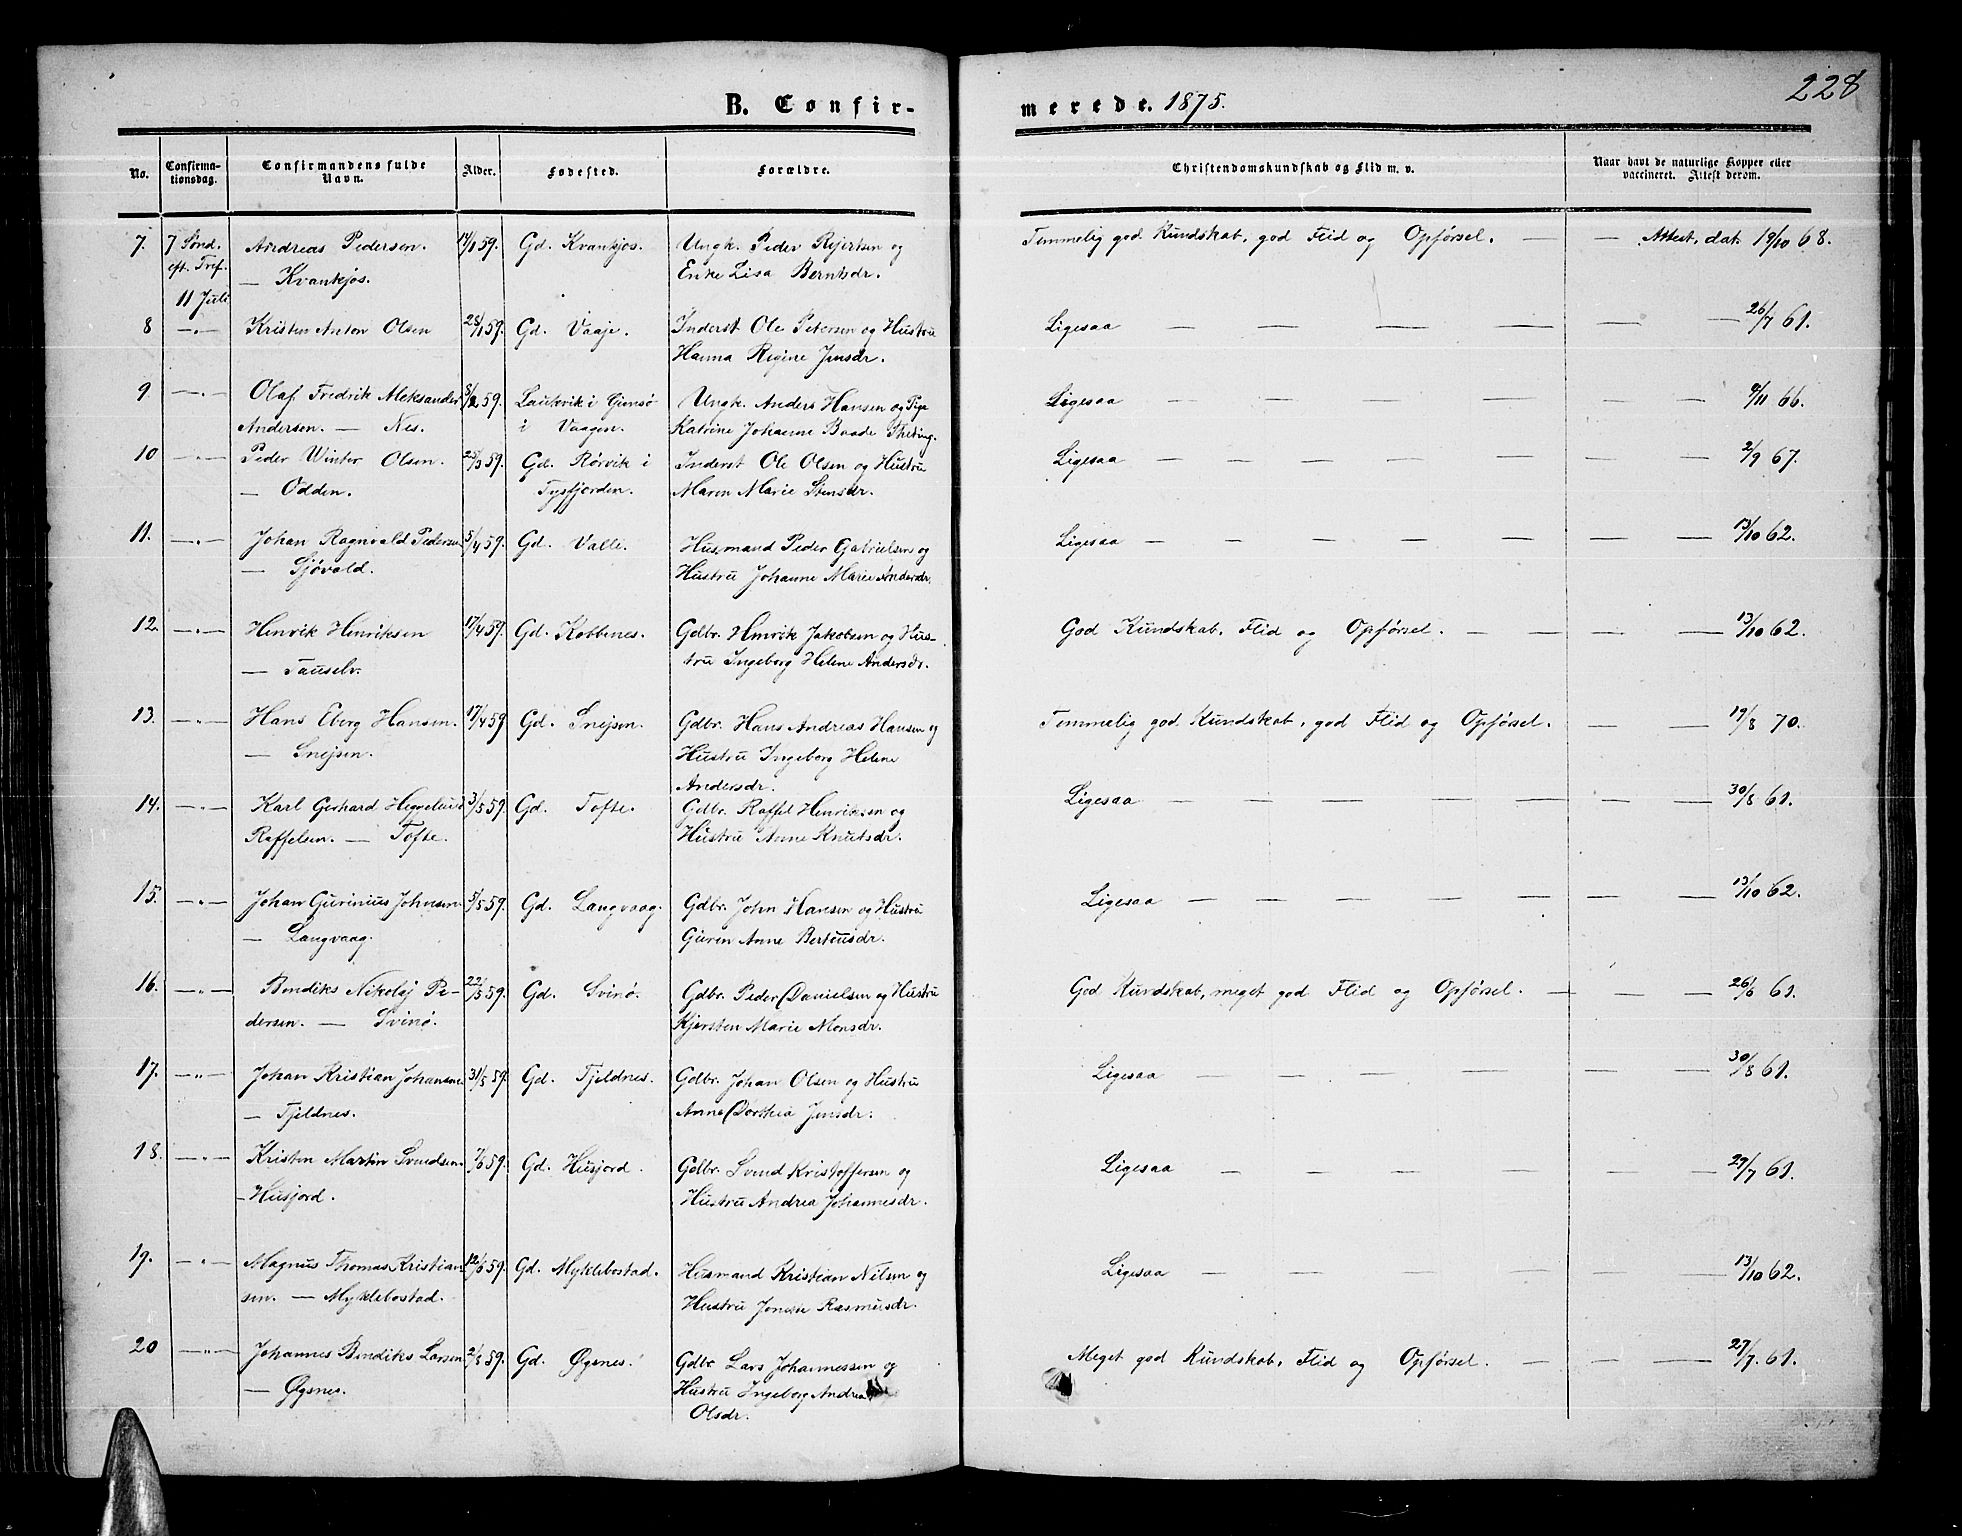 228
B. Confirmerede. 1875.
No. Confirmationsdag. Confirmandens fulde Navn. Alder. Fødested. Forældre. Christendomskundskab og Flid m. v. Naar havt de naturlige Kopper eller vaccineret. Attest derom.
7. 7 Sønd. Andreas Pedersen. 14/1 59. Gd. Kvankjos. Ungk. Peder Rejertsen og Temmelig god Kundskab, god Flid og Opførsel. — — Attest, dat. 19/10 68.
eft. Tref. — Kvankjos. Enke Lisa Berntsdr.
11 Juli
8 —„— Kristen Anton Olsen 28/1 59. Gd. Vaaje. Inderst Ole Petersen og Hustru Ligesaa — — — — — — 26/7 61.
Hanna Regine Jensdr.
9 —„— Olaf Fredrik Aleksander 8/2 59. Laukvik i Gimsø Ungk. Anders Hansen og Pige Ligesaa — — — — — — 9/11 66.
Andersen. — Nes. i Vaagen. Katrine Johanne Baade Thering.
10 —„— Peder Winter Olsen. 25/3 59. Gd. Rørvik i Inderst Ole Olsen og Hustru Ligesaa — — — — — — 2/9 67.
— Odden. Tysfjorden. Maren Marie Stensdr.
11. —„— Johan Ragnvald Pedersen 5/4 59. Gd. Valle. Husmand Peder Gabrielsen og Ligesaa — — — — — — 13/10 62.
— Sjøvold. Hustru Johanne Marie Andersdr.
12. —„— Henrik Henriksen 17/4 59. Gd. Kobbenes. Gdbr. Henrik Jakobsen og Hus- God Kundskab, Flid og Opførsel. — — — — 13/10 62.
— Tauselv. tru Ingeborg Helene Andersdr.
13. —„— Hans Eberg Hansen. 17/4 59 Gd. Snejsen. Gdbr. Hans Andreas Hansen og Temmelig god Kundskab, god Flid og Opførsel. — — 19/8 70.
— Snejsen. Hustru Ingeborg Helene
Andersdr.
14. —„— Karl Gerhard 3/5 59. Gd. Tofte. Gdbr. Raffel Henriksen og Ligesaa — — — — — — 30/8 61.
Raffelsen. — Tofte. Hustru Anne Knutsdr.
15. —„— Johan Gurinius Johnsen 5/5 59. Gd. Langvaag. Gdbr. John Hansen og Hustru Ligesaa — — — — — — 13/10 62.
— Langvaag. Guren Anne Berteusdr.
16. —„— Bendiks Nikolaj Pe- 22/5 59. Gd. Svinø. Gdbr. Peder Danielsen og Hustru God Kundskab, meget god Flid og Opførsel. — — — 26/6 61.
dersen. — Svinø. Kjersten Marie Monsdr.
17. —„— Johan Kristian Johansen 31/5 59. Gd. Tjeldnes. Gdbr. Johan Olsen og Hustru Ligesaa — — — — — — 30/8 61.
— Tjeldnes. Anne Dorthea Jensdr.
18. —„— Kristen Martin Svendsen 7/6 59. Gd. Husjord. Gdbr. Svend Kristoffersen og Ligesaa — — — — — — 27/7 61.
— Husjord. Hustru Andrea Johannesdr.
19. —„— Magnus Thomas Kristian- 12/6 59. Gd. Myklebostad. Husmand Kristian Nilsen og Ligesaa — — — — — — 13/10 62.
sen. — Myklebostad. Hustru Rasmusdr.
20 —„— Johannes Bendiks Larsen 2/8 59. Gd. Øgsnes. Gdbr Lars Johannessen og Meget god Kundskab, Flid og Opførsel. — — — 27/7. 61.
— Øgsnes. Hustru Ingeborg Andrea
Olsdr.